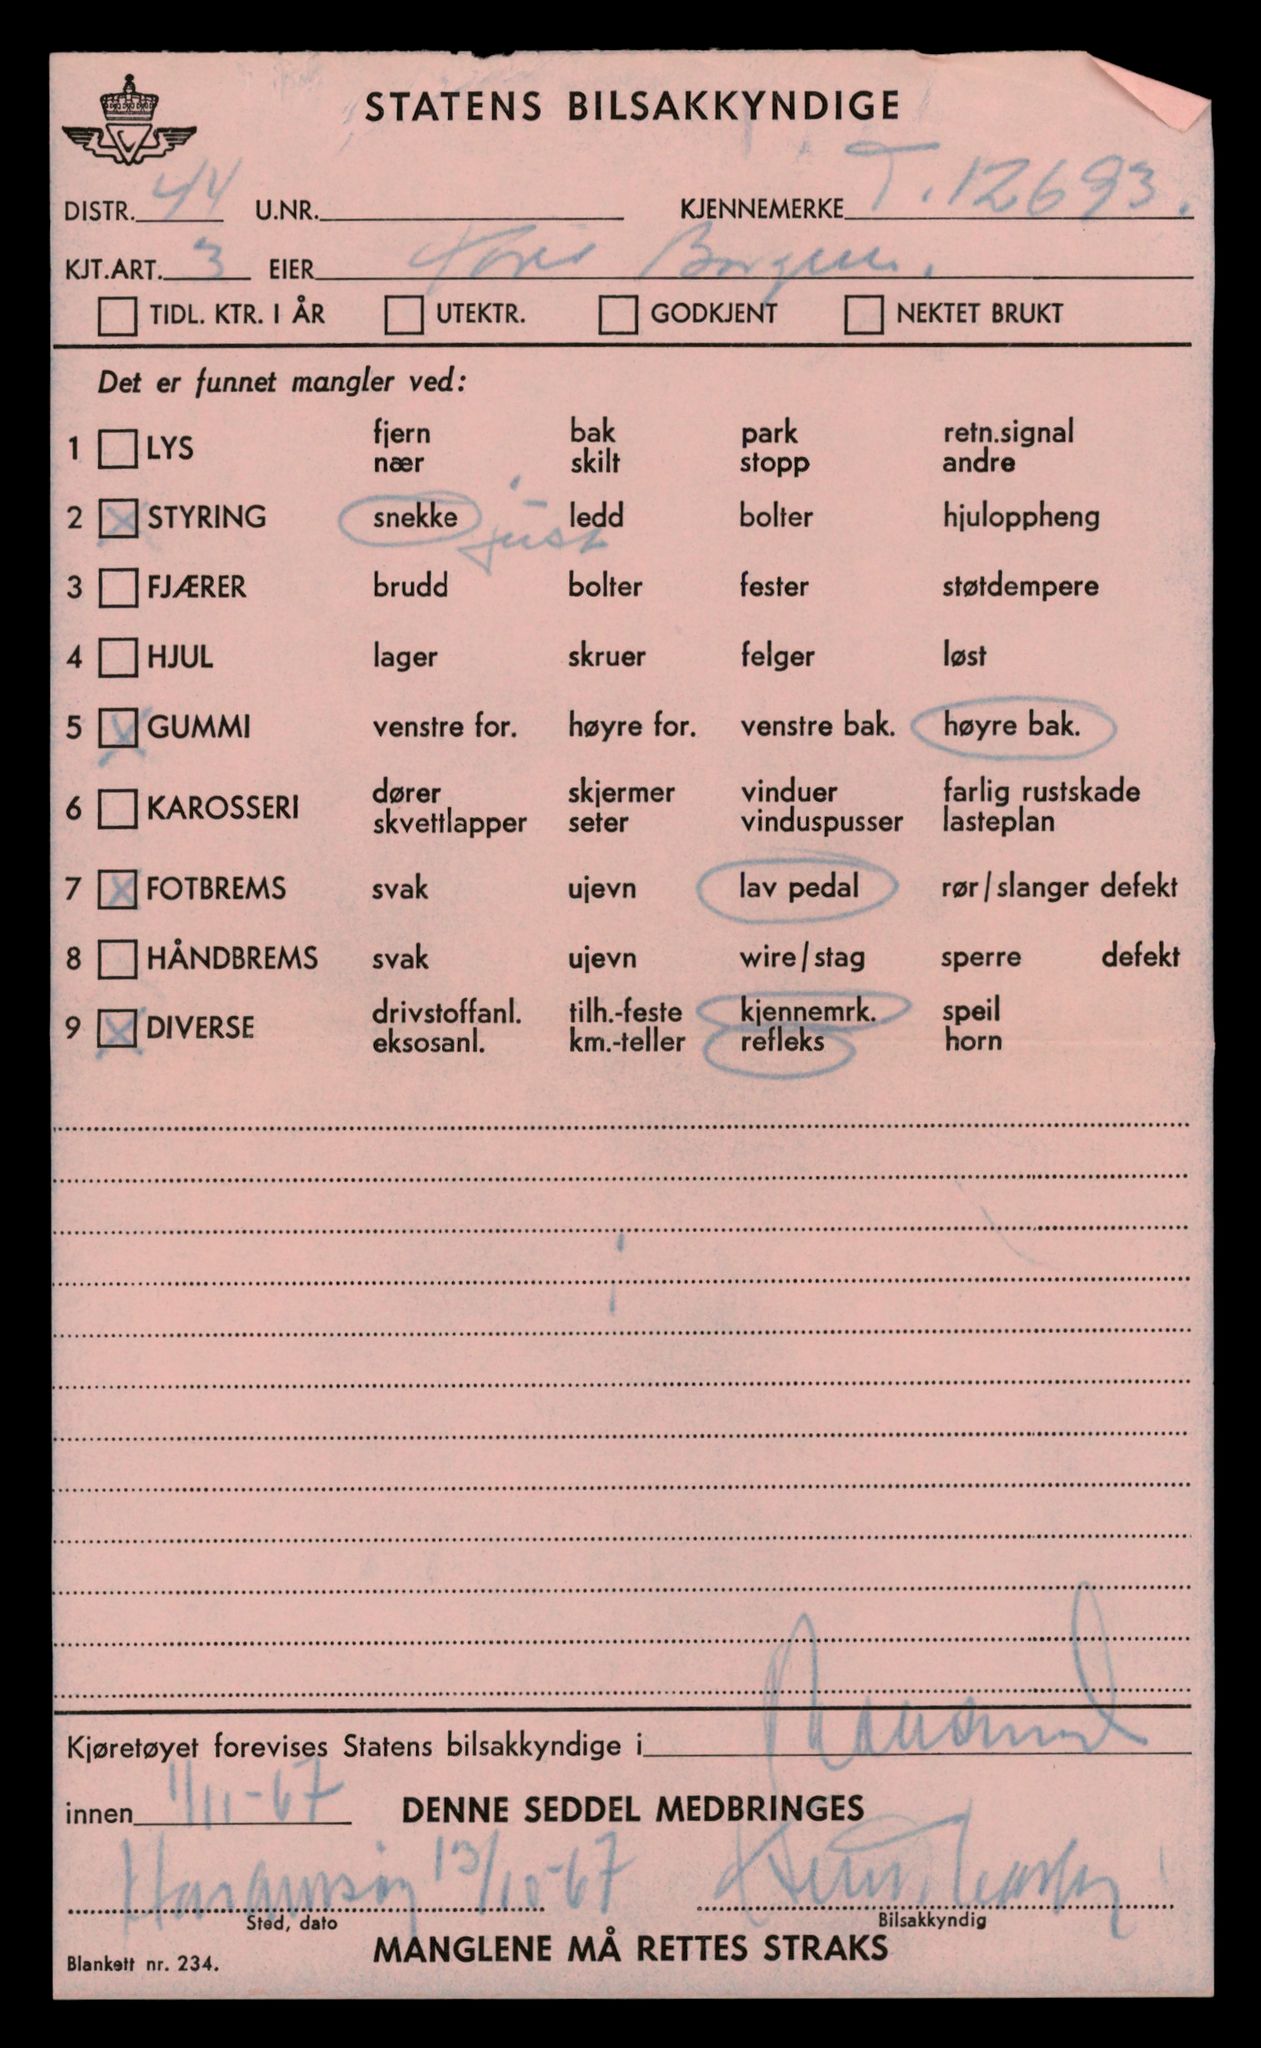 STATENS BILSAKKYNDIGE
DISTR. 44 U.NR. KJENNEMERKE T.12693.
KJT.ART. 3 EIER Borgen.
TIDL. KTR. I ÅR UTEKTR. GODKJENT NEKTET BRUKT
Det er funnet mangler ved:
1 LYS fjern bak park retn.signal
nær skilt stopp andre
2 STYRING snekke ledd bolter hjuloppheng
just
3 FJÆRER brudd bolter fester støtdempere
4 HJUL lager skruer felger løst
5 GUMMI venstre for. høyre for. venstre bak. høyre bak.
6 KAROSSERI dører skjermer vinduer farlig rustskade
skvettlapper seter vinduspusser lasteplan
7 FOTBREMS svak ujevn lav pedal rør/slanger defekt
8 HÅNDBREMS svak ujevn wire/stag sperre defekt
9 DIVERSE drivstoffanl. tilh.-feste kjennemrk. speil
eksosanl. km.-teller refleks horn
Kjøretøyet forevises Statens bilsakkyndige i
innen 1/11-67 DENNE SEDDEL MEDBRINGES
13/10-67
Sted, dato Bilsakkyndig
MANGLENE MÅ RETTES STRAKS
Blankett nr. 234.